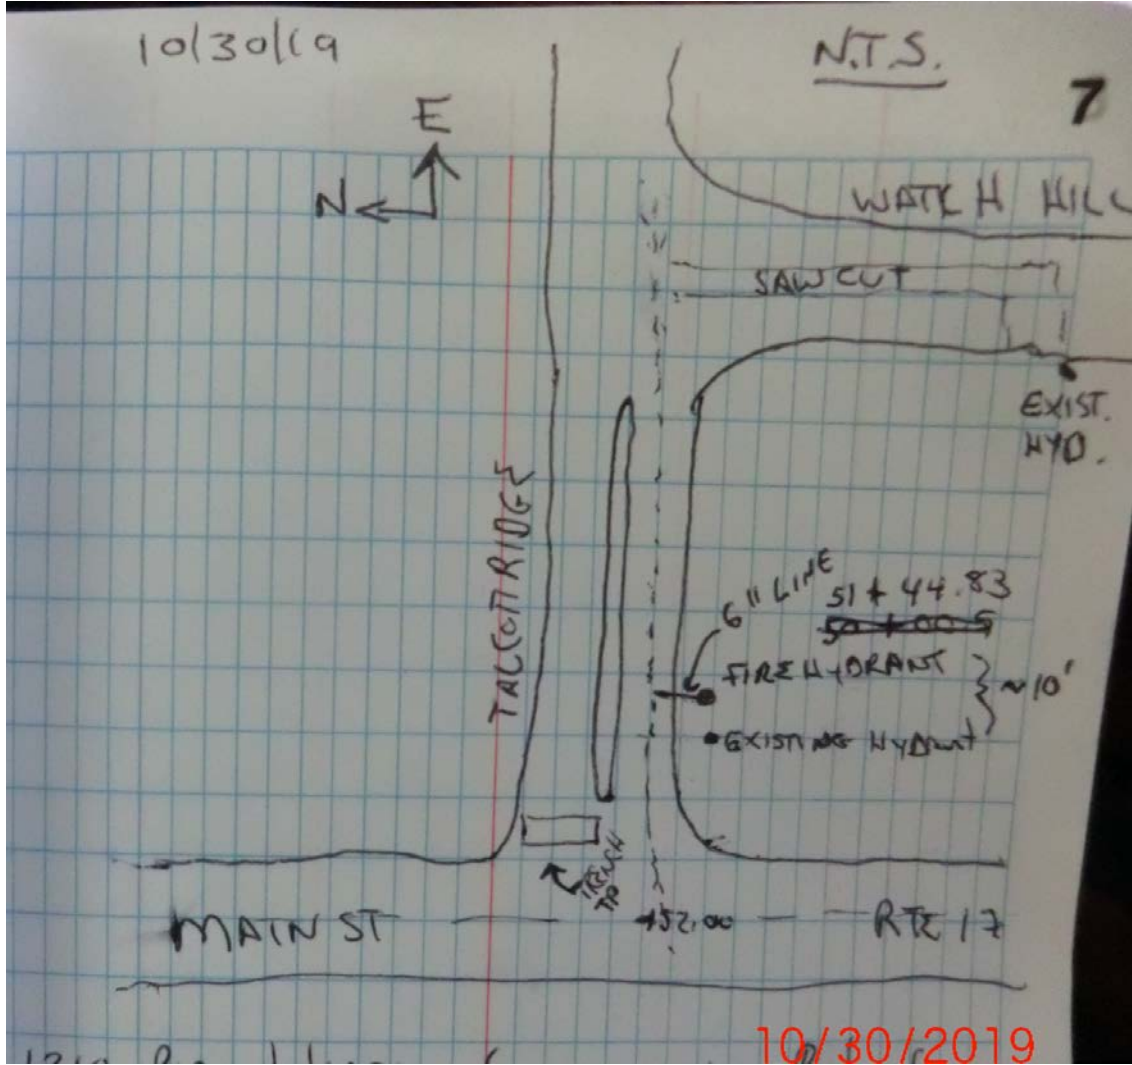 10/30/19
N.T.S.
7
E
N
WATCH HILL
SAW CUT
EXIST.
HYD.
TALCOTT RIDGE
6" LINE
51+44.83
50+00 S
FIRE HYDRANT
~10'
EXISTING HYDRANT
TRENCH
MAIN ST
+52.00
RTE 17
10/30/2019